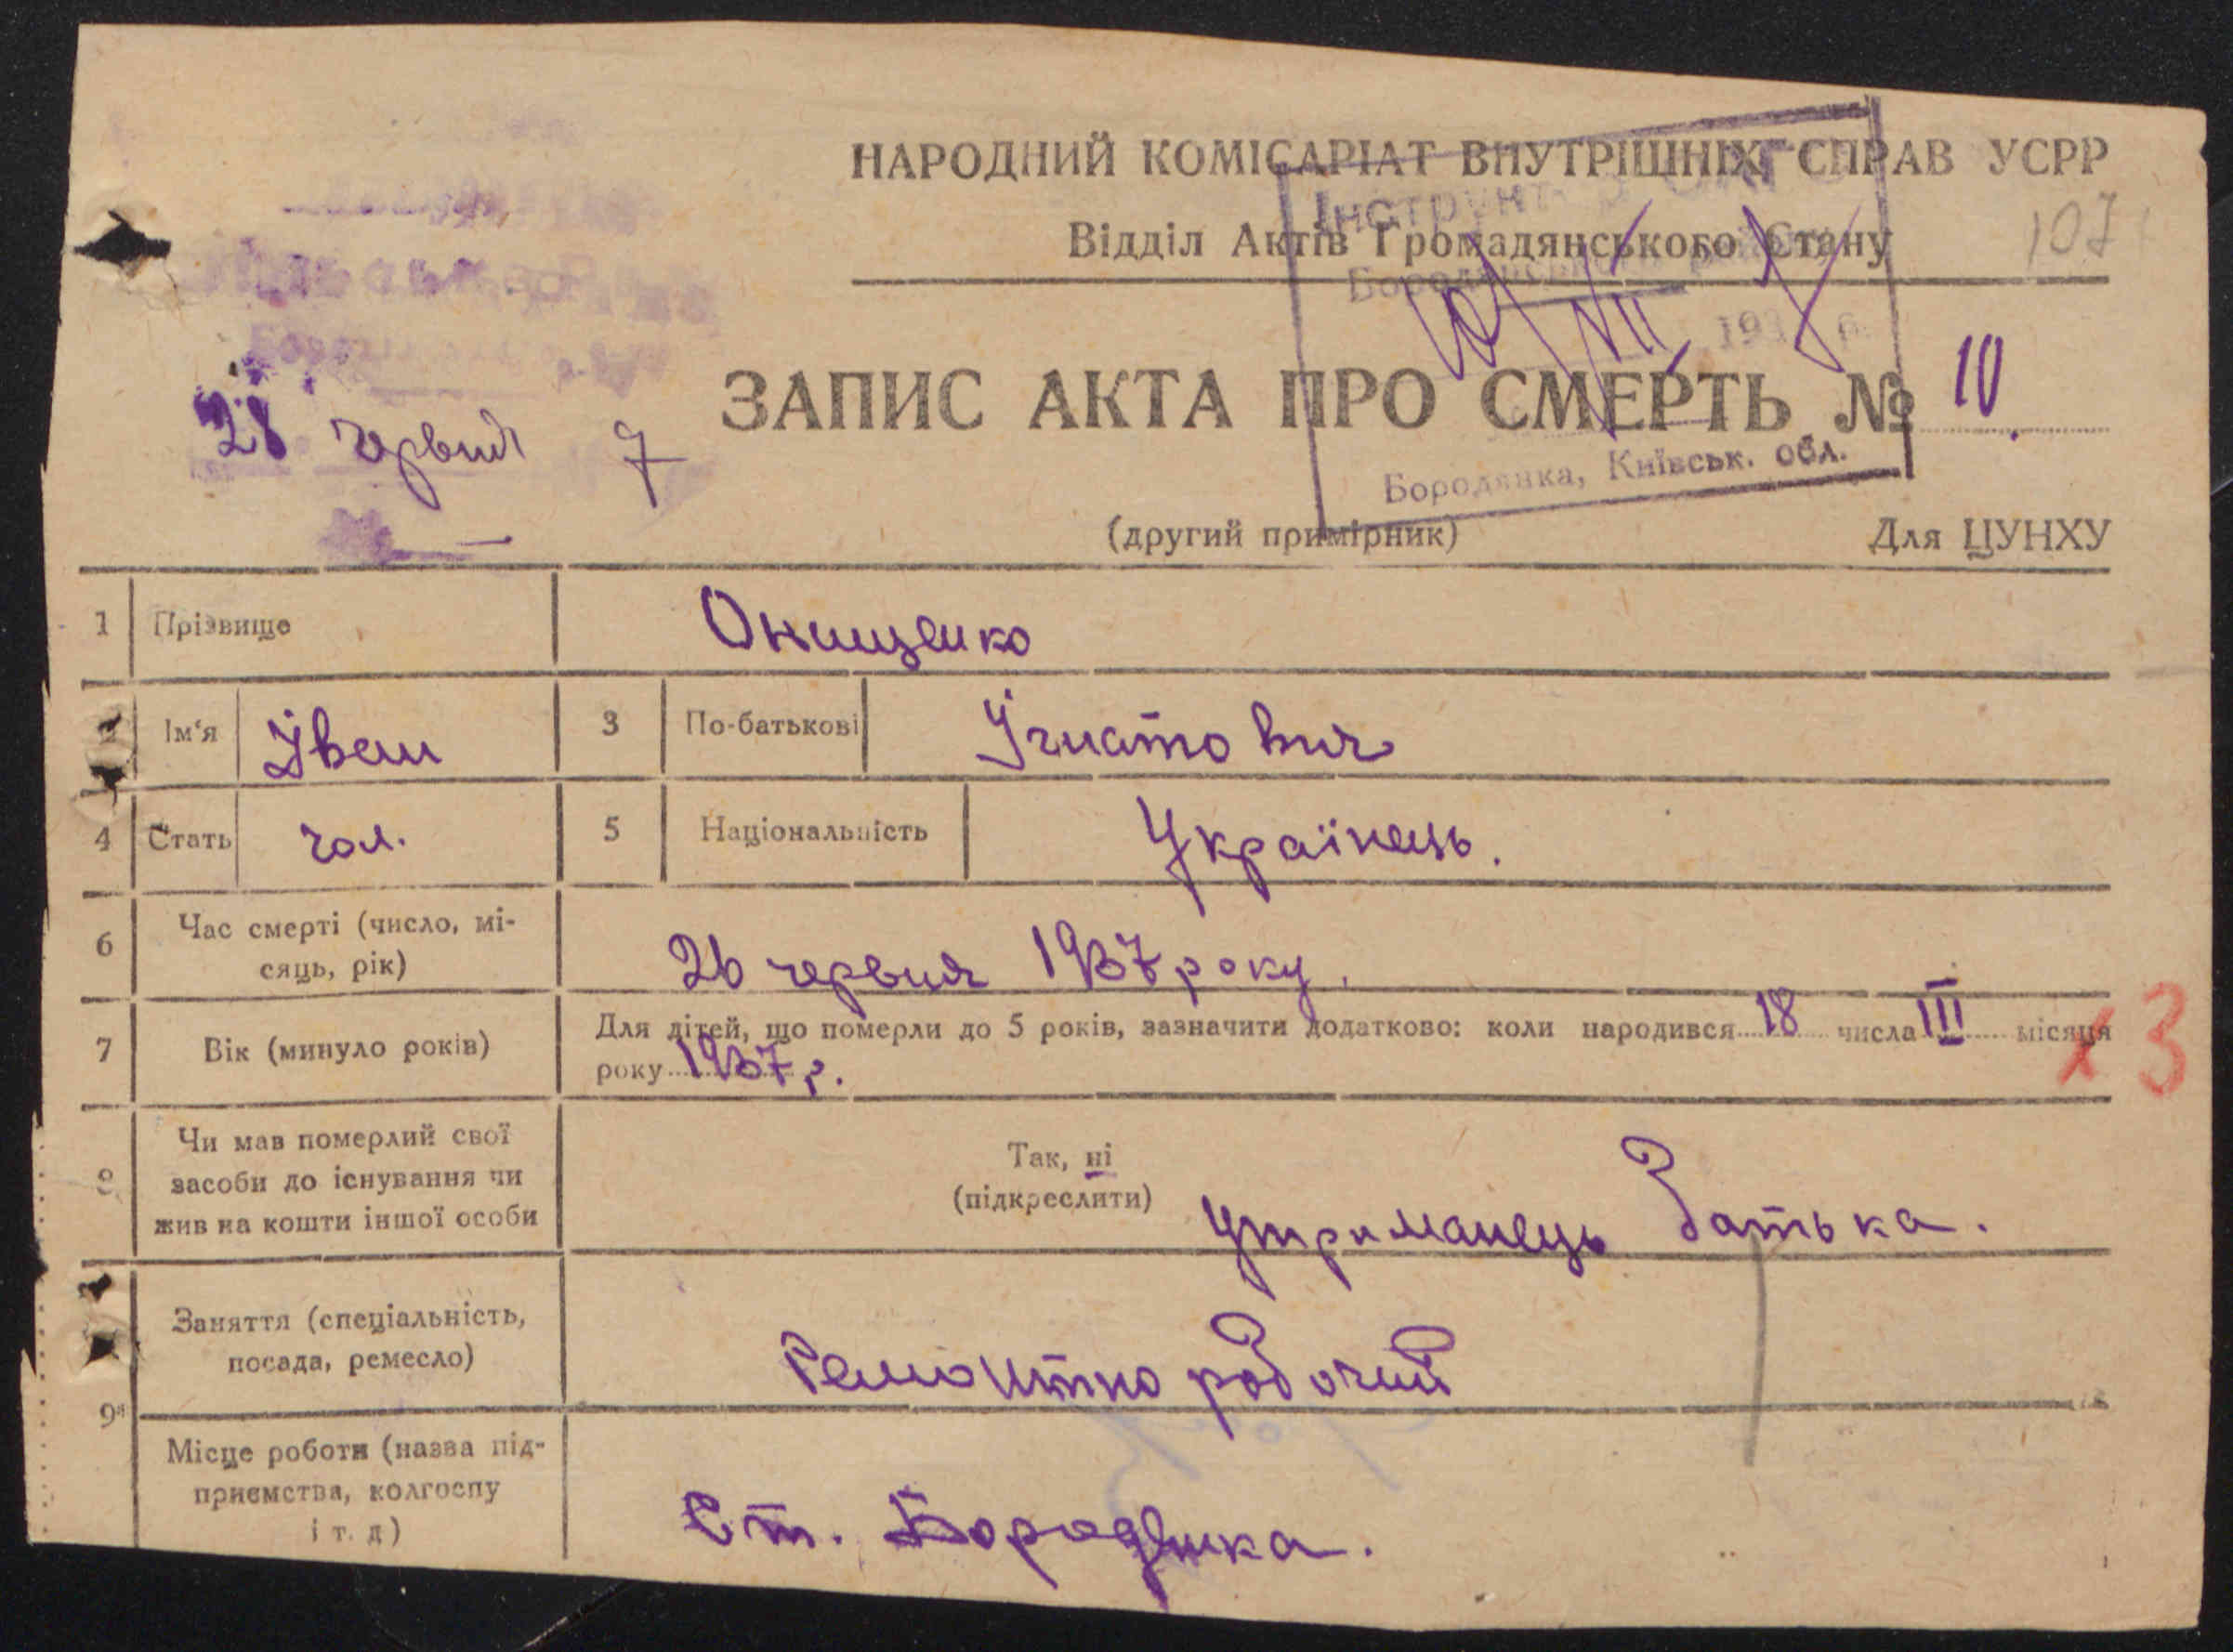 НАРОДНИЙ КОМІСАРІАТ ВНУТРІШНІХ СПРАВ УСРР
Відділ Актів Громадянського Стану
107
ЗАПИС АКТА ПРО СМЕРТЬ № 10
28 червня 7
Бородянка, Київськ. обл.
(другий примірник) Для ЦУНХУ
1 Прізвище Онищенко
Ім'я Іван 3 По-батькові Ігнатович
4 Стать чол. 5 Національність Українець.
6 Час смерті (число, мі-
сяць, рік)
26 червня 1937 року.
7 Вік (минуло років)
Для дітей, що померли до 5 років, зазначити додатково: коли народився 18 числа III місяця
року 1937 р.
3
Чи мав померлий свої
засоби до існування чи
жив на кошти іншої особи
Так, ні
(підкреслити)
утриманець батька.
Заняття (спеціальність,
посада, ремесло)
Ремонтно робочий
9
Місце роботи (назва під-
приємства, колгоспу
і т. д)
Ст. Бородянка.